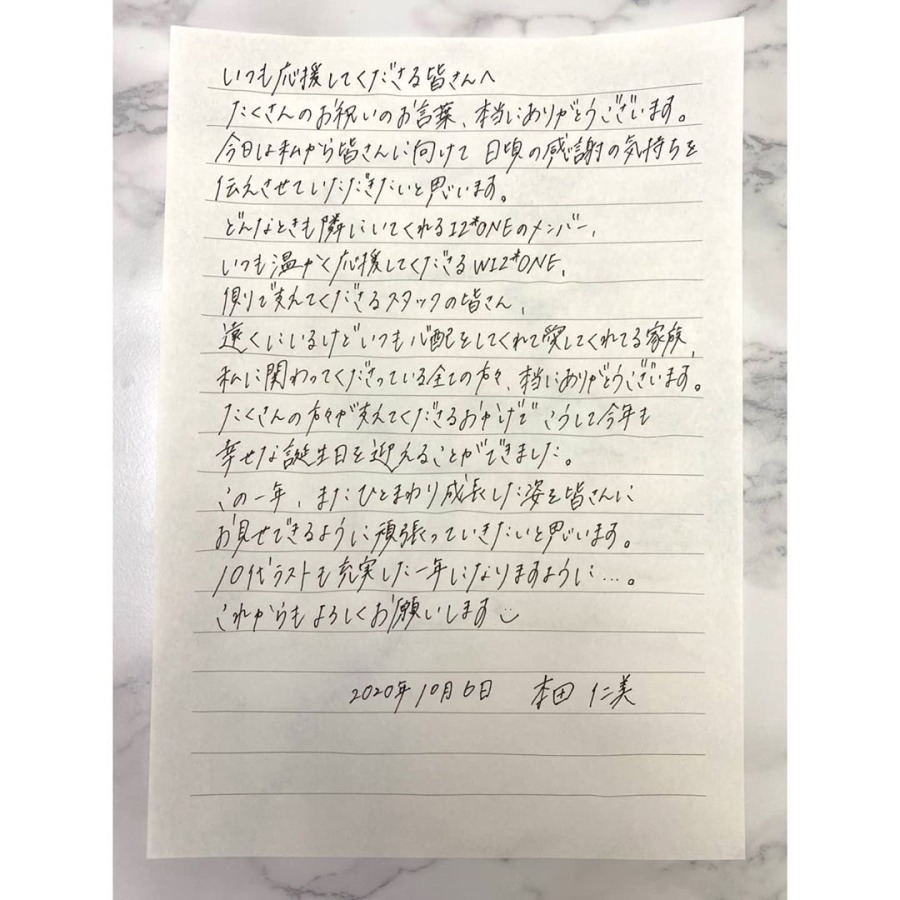 いつも応援してくださる皆さんへ
たくさんのお祝いのお言葉、本当にありがとうございます。
今日は私から皆さんに向けて 日頃の感謝の気持ちを
伝えさせていただきたいと思います。
どんなときも隣にいてくれるIZ*ONEのメンバー、
いつも温かく応援してくださるWIZ*ONE、
側で支えてくださるスタッフの皆さん、
遠くにいるけどいつも心配をしてくれて愛してくれてる家族、
私に関わってくださっている全ての方々、本当にありがとうございます。
たくさんの方々が支えてくださるおかげで こうして今年も
幸せな誕生日を迎えることができました。
この一年、またひとまわり成長した姿を皆さんに
お見せできるように頑張っていきたいと思います。
10代ラストも充実した一年になりますように…。
これからもよろしくお願いします
2020年10月6日 本田 仁美